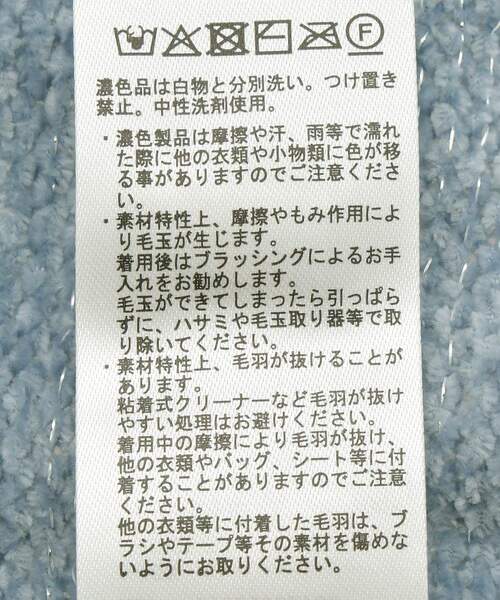 F
濃色品は白物と分別洗い。つけ置き
禁止。中性洗剤使用。
・濃色製品は摩擦や汗、雨等で濡れ
た際に他の衣類や小物類に色が移
る事がありますのでご注意くださ
い。
・素材特性上、摩擦やもみ作用によ
り毛玉が生じます。
着用後はブラッシングによるお手
入れをお勧めします。
毛玉ができてしまったら引っぱら
ずに、ハサミや毛玉取り器等で取
り除いてください。
・素材特性上、毛羽が抜けることが
あります。
粘着式クリーナーなど毛羽が抜け
やすい処理はお避けください。
着用中の摩擦により毛羽が抜け、
他の衣類やバッグ、シート等に付
着することがありますのでご注意
ください。
他の衣類等に付着した毛羽は、ブ
ラシやテープ等その素材を傷めな
いようにお取りください。